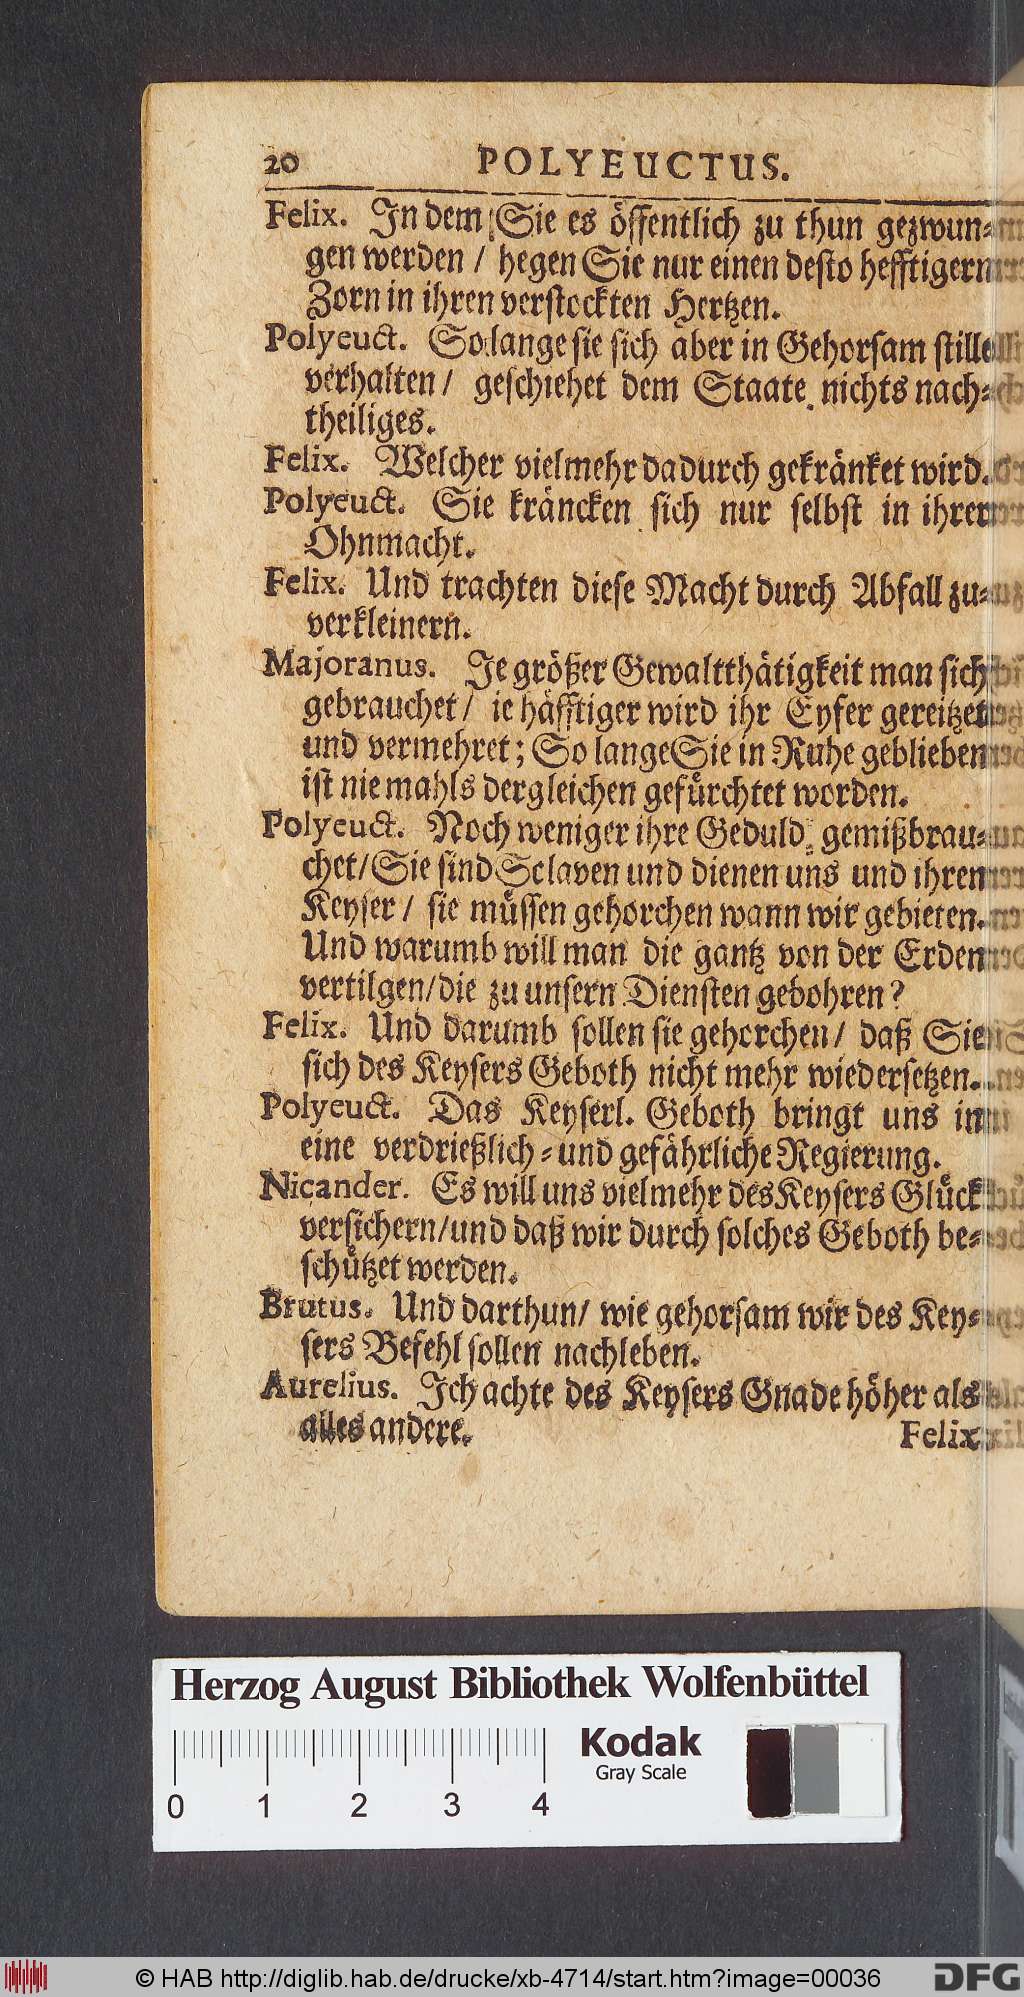 20 POLYEUCTUS.
Felix. In dem Sie es öffentlich zu thun gezwun-
gen werden / hegen Sie nur einen desto hefftigern
Zorn in ihren verstockten Hertzen.
Polyeuct. So lange sie sich aber in Gehorsam stille
verhalten / geschiehet dem Staate nichts nach-
theiliges.
Felix. Welcher vielmehr dadurch gekränket wird.
Polyeuct. Sie kräncken sich nur selbst in ihrer
Ohnmacht.
Felix. Und trachten diese Macht durch Abfall zu-
verkleinern.
Majoranus. Je größer Gewaltthätigkeit man sich
gebrauchet / ie häfftiger wird ihr Eyfer gereitzet
und vermehret; So lange Sie in Ruhe geblieben
ist niemahls dergleichen gefürchtet worden.
Polyeuct. Noch weniger ihre Geduld gemißbrau-
chet / Sie sind Sclaven und dienen uns und ihren
Keyser / sie müssen gehorchen wann wir gebieten.
Und warumb will man die gantz von der Erden
vertilgen / die zu unsern Diensten gebohren?
Felix. Und darumb sollen sie gehorchen / daß Sie
sich des Keysers Geboth nicht mehr wiedersetzen.
Polyeuct. Das Keyserl. Geboth bringt uns in
eine verdrießlich- und gefährliche Regierung.
Nicander. Es will uns vielmehr des Keysers Glück
versichern / und daß wir durch solches Geboth be-
schützet werden.
Brutus. Und darthun / wie gehorsam wir des Key-
sers Befehl sollen nachleben.
Aurelius. Ich achte des Keysers Gnade höher als
alles andere.
Felix
Herzog August Bibliothek Wolfenbüttel
Kodak
Gray Scale
0 1 2 3 4
© HAB http://diglib.hab.de/drucke/xb-4714/start.htm?image=00036
DFG